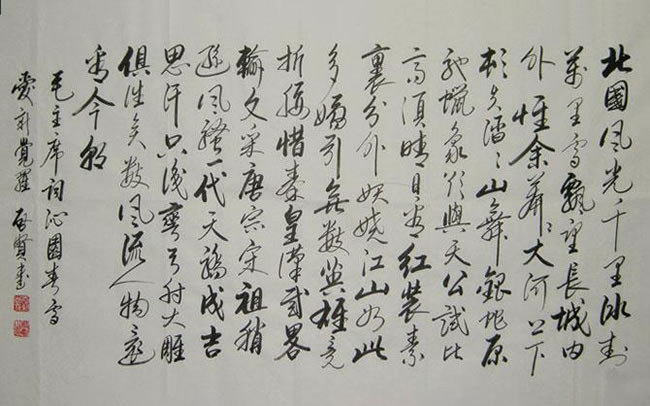 北國风光千里冰封
萬里雪飄望長城内
外惟余莽々大河上下
頓失滔々山舞銀蛇原
馳蠟象欲與天公試比
高須晴日看紅裝素
裹分外妖嬈江山如此
多嬌引無數英雄竞
折腰惜秦皇漢武畧
輸文采唐宗宋祖稍
遜风騷一代天驕成吉
思汗只識彎弓射大雕
俱往矣數风流人物還
看今朝
毛主席詞沁園春雪
愛新覺羅 啟賢書